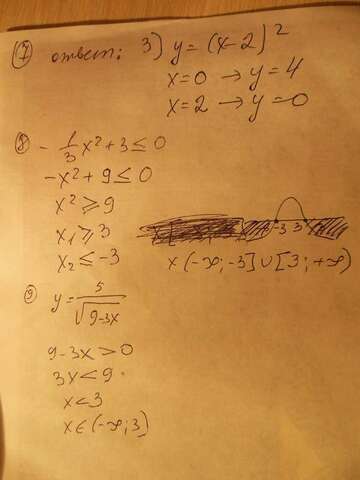 ⑦ ответ: 3) y = (x-2)²
x=0 → y=4
x=2 → y=0
⑧ - 1/3 x² + 3 ≤ 0
-x² + 9 ≤ 0
x² ≥ 9
x₁ ≥ 3
-3 3
x₂ ≤ -3
x (-∞; -3] ∪ [3; +∞)
⑨ y = 5/√(9-3x)
9-3x > 0
3x < 9
x < 3
x ∈ (-∞; 3)